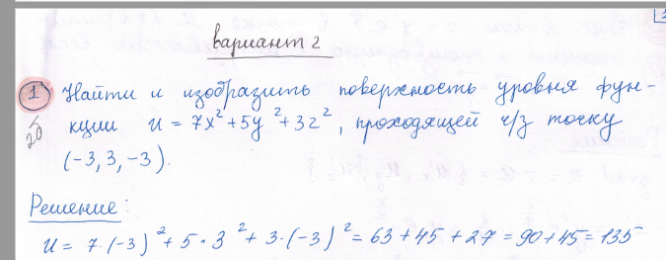 вариант 2
1 Найти и изобразить поверхность уровня фун-
кции u = 7x² + 5y² + 3z², проходящей ч/з точку
(-3, 3, -3).
20
Решение:
u = 7·(-3)² + 5·3² + 3·(-3)² = 63 + 45 + 27 = 90 + 45 = 135